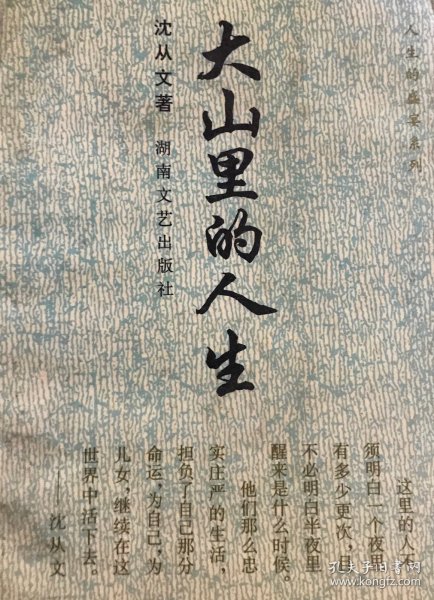 人生的盛宴系列
大山里的人生
沈从文著
湖南文艺出版社
这里的人不
须明白一个夜里
有多少更次,且
不必明白半夜里
醒来是什么时候。
他们那么忠
实庄严的生活,
担负了自己那分
命运,为自己,为
儿女,继续在这
世界中活下去。
——沈从文
孔夫子旧书网
www.kongfz.com